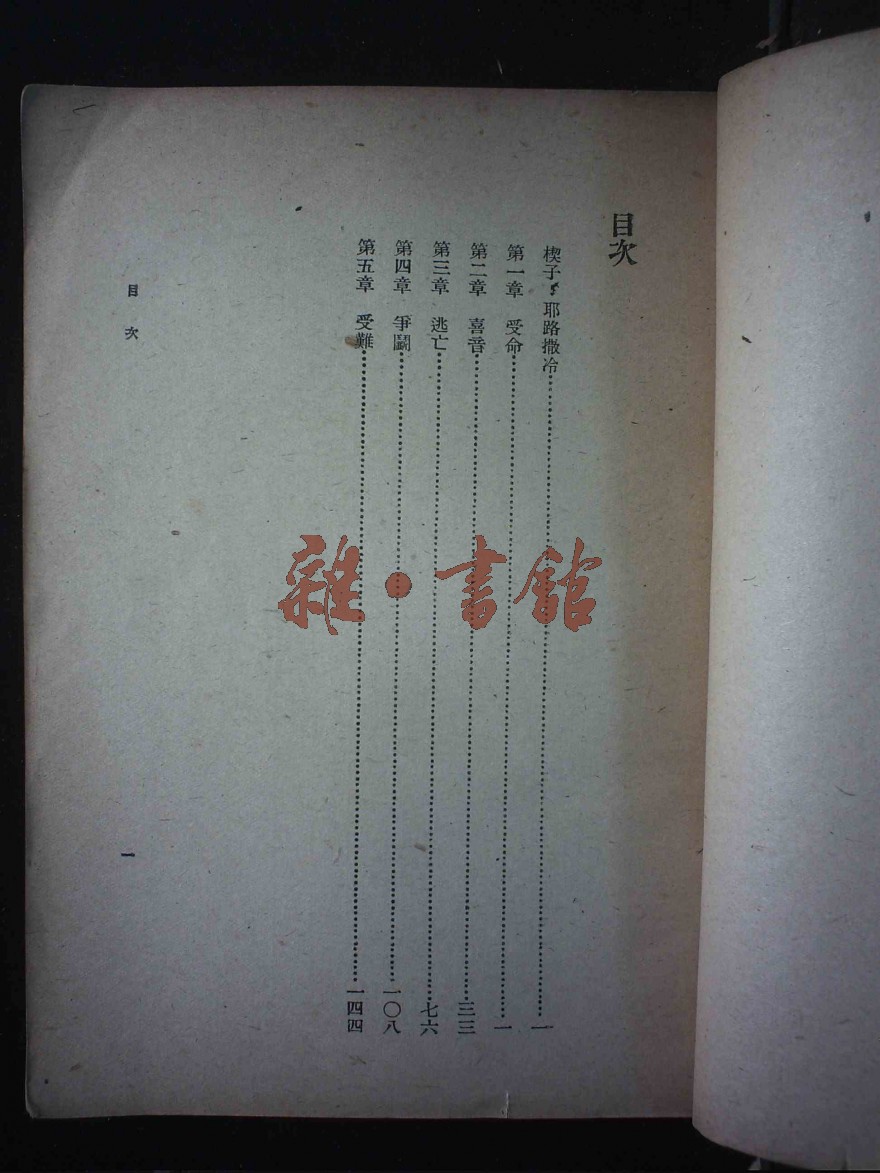 目次
楔子：耶路撒冷……一
第一章　受命……一
第二章　喜音……三三
第三章　逃亡……七六
第四章　爭鬭……一〇八
第五章　受難……一四四
目次
一
雜•書館